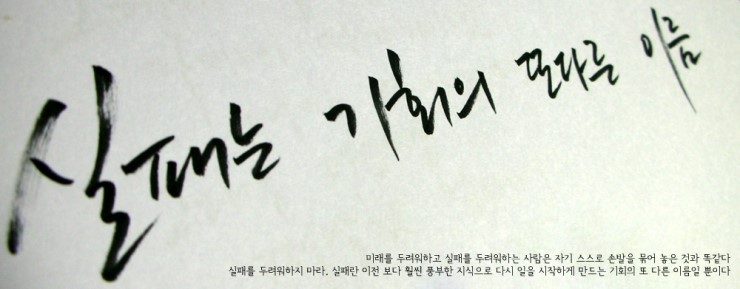 실패는 기회의 또다른 이름
미래를 두려워하고 실패를 두려워하는 사람은 자기 스스로 손발을 묶어 놓은 것과 똑같다
실패를 두려워하지 마라. 실패란 이전 보다 훨씬 풍부한 지식으로 다시 일을 시작하게 만드는 기회의 또 다른 이름일 뿐이다